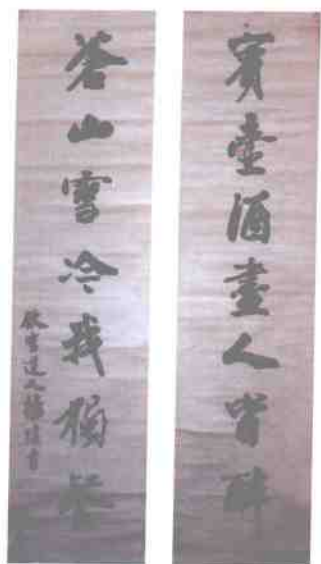 賓壺酒盡人皆醉
蒼山雪冷我獨醒